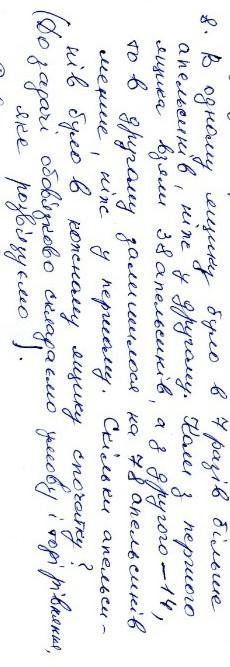 8. В одному ящику було в 7 разів більше
апельсинів, ніж у другому. Коли з першого
ящика взяли 38 апельсинів, а з другого – 14,
то в другому залишилося на 78 апельсинів
менше, ніж у першому. Скільки апельси-
нів було в кожному ящику спочатку?
(До задачі обов'язково складаємо умову і тоді рівняння,
яке розв'язуємо).